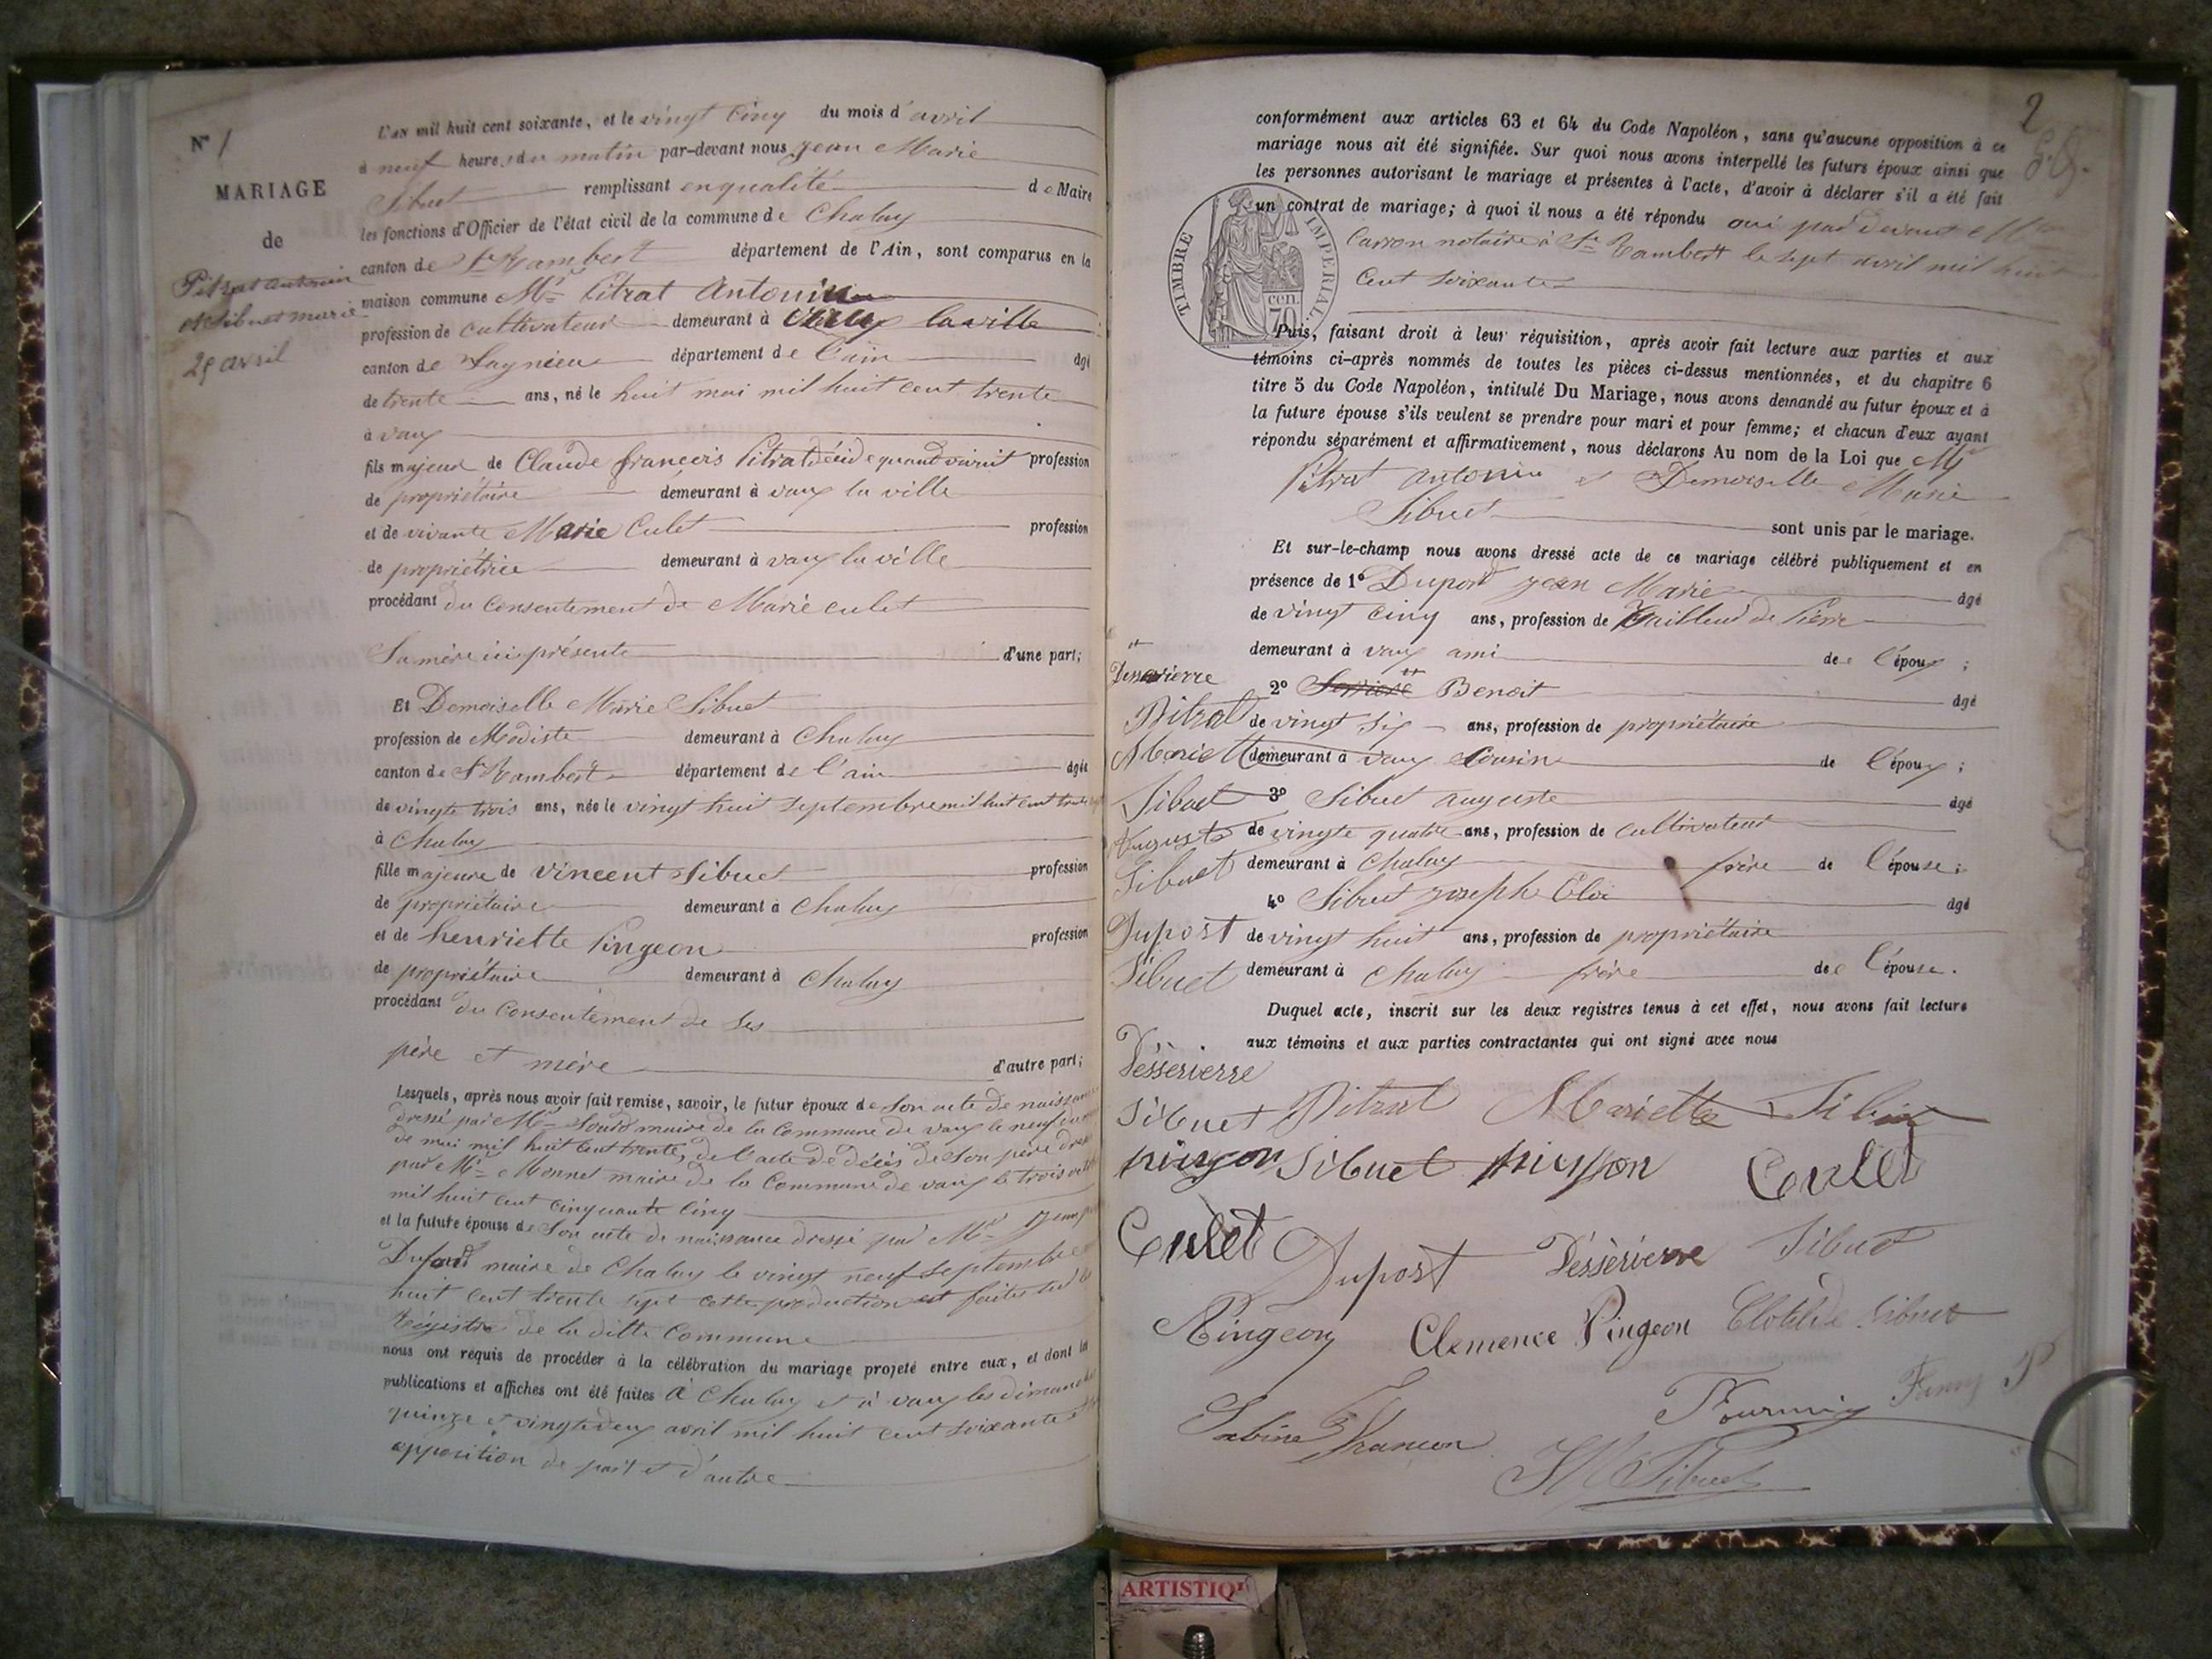 N° 1
MARIAGE
de
Pitrat antonin
et Sibuet marie
25 avril
L'an mil huit cent soixante, et le vingt cinq du mois d'avril
à neuf heures du matin par-devant nous jean Marie
Sibuet remplissant en qualité de Maire
les fonctions d'Officier de l'état civil de la commune de Chaley
canton de St Rambert département de l'Ain, sont comparus en la
maison commune Mr Pitrat Antonin
profession de cultivateur demeurant à Vaux la ville
canton de Lagnieu département de l'ain âgé
de trente ans, né le huit mai mil huit cent trente
à vaux
fils majeur de Claude françois Pitrat décédé quand vivait profession
de propriétaire demeurant à vaux la ville
et de vivante Marie Culet profession
de propriétrice demeurant à vaux la ville
procédant du consentement de Marie culet
Sa mère ici présente d'une part;
Et Demoiselle Marie Sibuet
profession de Modiste demeurant à Chaley
canton de St Rambert département de l'ain âgée
de vingte trois ans, née le vingt huit septembre mil huit cent trente
à Chaley
fille majeure de vincent Sibuet profession
de propriétaire demeurant à Chaley
et de henriette Pingeon profession
de propriétaire demeurant à Chaley
procédant du consentement de ses
père et mère d'autre part;
Lesquels, après nous avoir fait remise, savoir, le futur époux de son acte de naissance
dressé par Mr maire de la commune de vaux le neuf du
de mai mil huit cent trente, de l'acte de décès de son père
par Mr Monnet maire de la Commune de vaux le trois
mil huit cent cinquante cinq
et la future épouse de son acte de naissance dressé par Mr
Dupord maire de Chaley le vingt neuf septembre
huit cent trente sept cette production est faite sur le
Régistre de la ditte commune
nous ont requis de procéder à la célébration du mariage projeté entre eux, et dont les
publications et affiches ont été faites à Chaley et à vaux les dimanches
quinze et vingtedeux avril mil huit cent soixante
opposition de part et d'autre
2
conformément aux articles 63 et 64 du Code Napoléon, sans qu'aucune opposition à ce
mariage nous ait été signifiée. Sur quoi nous avons interpellé les futurs époux ainsi que
les personnes autorisant le mariage et présentes à l'acte, d'avoir à déclarer s'il a été fait
un contrat de mariage; à quoi il nous a été répondu oui par devant Me
Carron notaire à St Rambert le sept avril mil huit
cent soixante
TIMBRE IMPERIAL
70 cen.
Puis, faisant droit à leur réquisition, après avoir fait lecture aux parties et aux
témoins ci-après nommés de toutes les pièces ci-dessus mentionnées, et du chapitre 6
titre 5 du Code Napoléon, intitulé Du Mariage, nous avons demandé au futur époux et à
la future épouse s'ils veulent se prendre pour mari et pour femme; et chacun d'eux ayant
répondu séparément et affirmativement, nous déclarons Au nom de la Loi que Mr
Pitrat antonin et Demoiselle Marie
Sibuet sont unis par le mariage.
Et sur-le-champ nous avons dressé acte de ce mariage célébré publiquement et en
présence de 1° Dupord jean Marie âgé
de vingt cinq ans, profession de tailleur de Pierre
demeurant à vaux ami de l'époux;
Desserierre
2° Serriere Benoit âgé
de vingt six ans, profession de propriétaire
demeurant à vaux cousin de l'époux;
3° Sibuet auguste âgé
de vingte quatre ans, profession de cultivateur
demeurant à Chaley frère de l'épouse;
4° Sibuet joseph Eloi âgé
de vingt huit ans, profession de propriétaire
demeurant à Chaley frère de l'épouse.
Pitrat
Mariette
Sibuet
Auguste
Sibuet
Dupost
Sibuet
Duquel acte, inscrit sur les deux registres tenus à cet effet, nous avons fait lecture
aux témoins et aux parties contractantes qui ont signé avec nous
Desserierre
Sibuet Pitrat Mariette Sibuet
pingon Sibuet Culet
Culet Dupost Desserierre Sibuet
Pingeon Clemence Pingeon Clotilde Sibuet
Sabine Francon Fournier Fanny P
JM Sibuet
ARTISTIQ